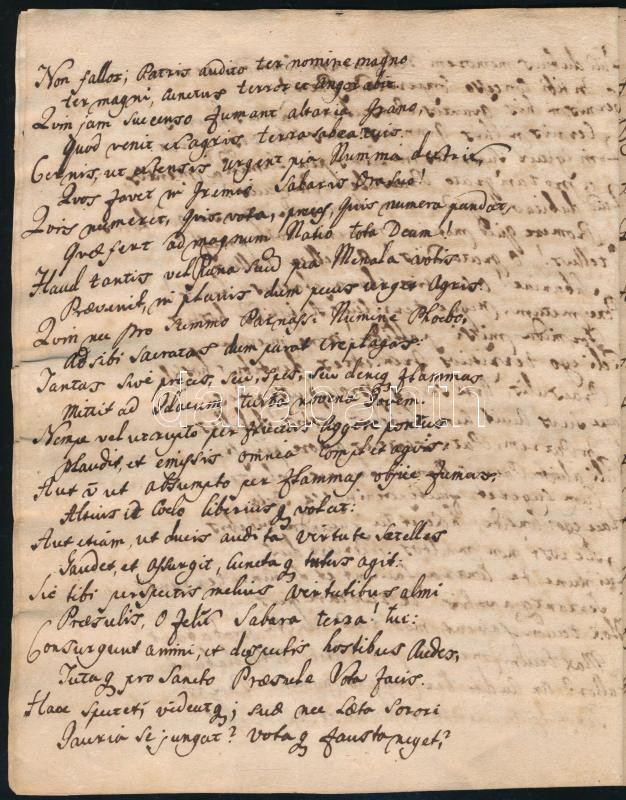 Non fallor; Patris audito ter nomine magno
ter magni, cunctus terror et Angor abit.
Quin jam succenso fumant altaria grano
Quod venit ex agris terra Sabaea tuis.
Cernis, ut extensis urgent pia Numina dextris,
Quos favet in gremio Sabaris
Quis numeret, quis vota, preces, quis munera pandat,
Quae fert ad magnum Natio tota Deum!
Haud tantis vel pia Menala votis
Praevenit, in pluviis dum pecus urget Agris.
Quin nec pro summo Parnassi Numine Phoebo,
Ad sibi sacratas dum parat ire plagas.
Tantas sive preces, seu spes, seu deniq flammas
Mittit ad Idaeum turba Jovem.
Nempe vel ut rupto per aggere pontus
Plaudit, et emissis omnia complet aquis.
Aut ut absumpto per flammas obice fumus,
Altius it Coelo liberiusq volat:
Aut etiam, ut ducis audita virtute Satelles
Gaudet, et assurgit, cunctaq tutus agit:
Sic tibi perspectis melius virtutibus almi
Praesulis, O felix Sabara terra! tui:
Consurgunt animi, et despectis hostibus Audes,
Tutaq pro Sancto Praesule Vota facis.
Haec sputet, videatq; suae nec laeta Sorori
Jauria se jungat? votaq fausta neget?
darabanth